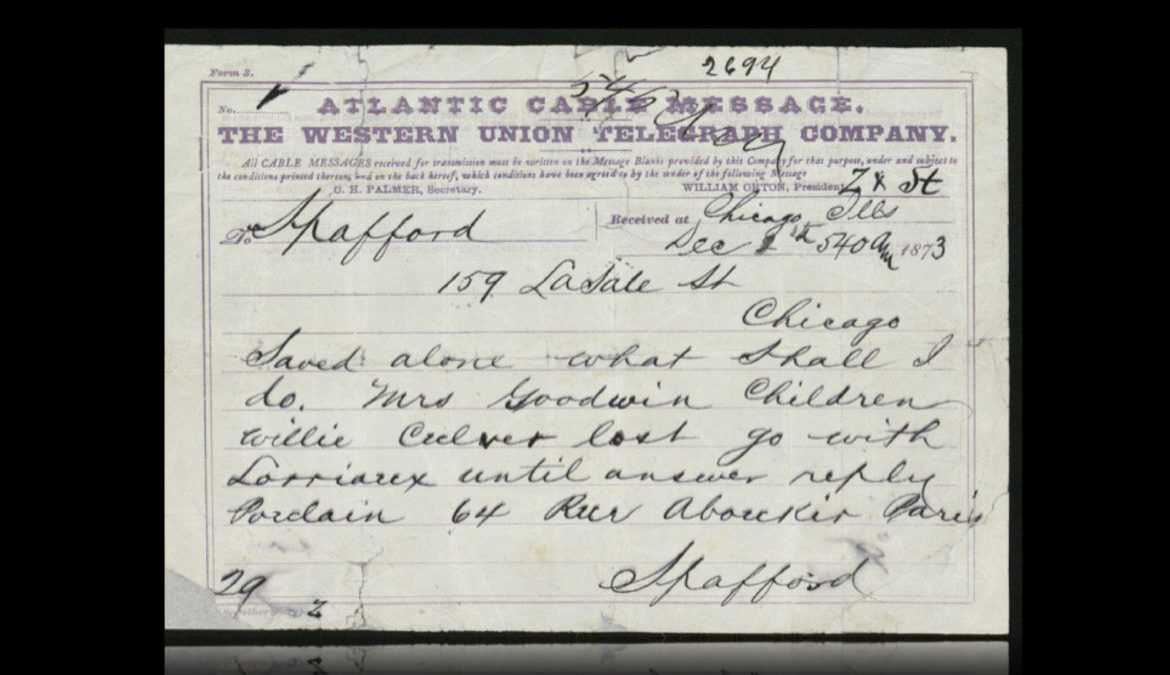 2694
Form 3.
No.
ATLANTIC CABLE MESSAGE.
THE WESTERN UNION TELEGRAPH COMPANY.
All CABLE MESSAGES received for transmission must be written on the Message Blanks provided by this Company for that purpose, under and subject to
the conditions printed thereon, and on the back hereof, which conditions have been agreed to by the sender of the following Message
O. H. PALMER, Secretary. WILLIAM ORTON, President
Z x St
To Spafford Received at Chicago Ills
Dec 540 am 1873
159 LaSale St
Chicago
Saved alone what shall I
do. Mrs Goodwin Children
Willie Culver lost go with
Lorriaux until answer reply
Porclain 64 Rue Aboukir Paris
Spafford
29 Z